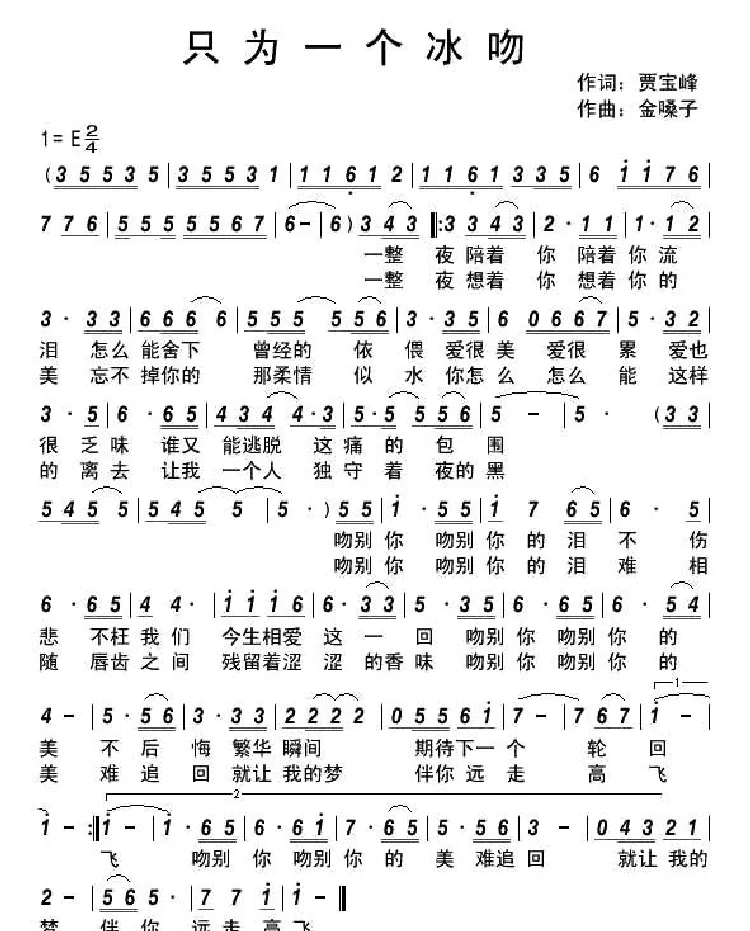 只为一个冰吻
作词：贾宝峰
作曲：金嗓子
1=E 2/4
(3 5 5 3 5 | 3 5 5 3 1 | 1 1 6 1 2 | 1 1 6 1 3 3 5 | 6 1 1 7 6 |
7 7 6 | 5 5 5 5 5 6 7 | 6 - | 6) 3 4 3 |: 3 3 4 3 | 2 · 1 1 | 1 · 1 2 |
一整 夜 陪着 你 陪着 你 流
一整 夜 想着 你 想着 你 的
3 · 3 3 | 6 6 6 6 | 5 5 5 5 5 6 | 3 · 3 5 | 6 0 6 6 7 | 5 · 3 2 |
泪 怎么 能舍下 曾经的 依 偎 爱很 美 爱很 累 爱也
美 忘不 掉你的 那柔情 似 水 你怎么 怎么 能 这样
3 · 5 | 6 · 6 5 | 4 3 4 4 · 3 | 5 · 5 5 5 6 | 5 - | 5 · (3 3 |
很 乏 味 谁又 能逃脱 这 痛 的 包 围
的 离 去 让我 一个人 独 守 着 夜的 黑
5 4 5 5 | 5 4 5 5 5 | 5 · ) 5 5 | 1 · 5 5 | 1 7 6 5 | 6 · 5 |
吻别 你 吻别 你 的 泪 不 伤
吻别 你 吻别 你 的 泪 难 相
6 · 6 5 | 4 4 · | 1 1 1 6 | 6 · 3 3 | 5 · 3 5 | 6 · 6 5 | 6 · 5 4 |
悲 不枉 我 们 今生相爱 这 一 回 吻别 你 吻别 你 的
随 唇齿 之 间 残留着涩 涩 的香 味 吻别 你 吻别 你 的
4 - | 5 · 5 6 | 3 · 3 3 | 2 2 2 2 | 0 5 5 6 1 | 7 - | 7 6 7 | 1 - |
1
美 不 后 悔 繁华 瞬间 期待下一 个 轮 回
美 难 追 回 就让 我的梦 伴你 远 走 高 飞
2
1 - :| 1 - | 1 · 6 5 | 6 · 6 1 | 7 · 6 5 | 5 · 5 6 | 3 - | 0 4 3 2 1 |
飞 吻别 你 吻别 你 的 美 难追 回 就让 我的
2 - | 5 6 5 · | 7 7 1 | 1 - ‖
梦 伴 你 远 走 高 飞